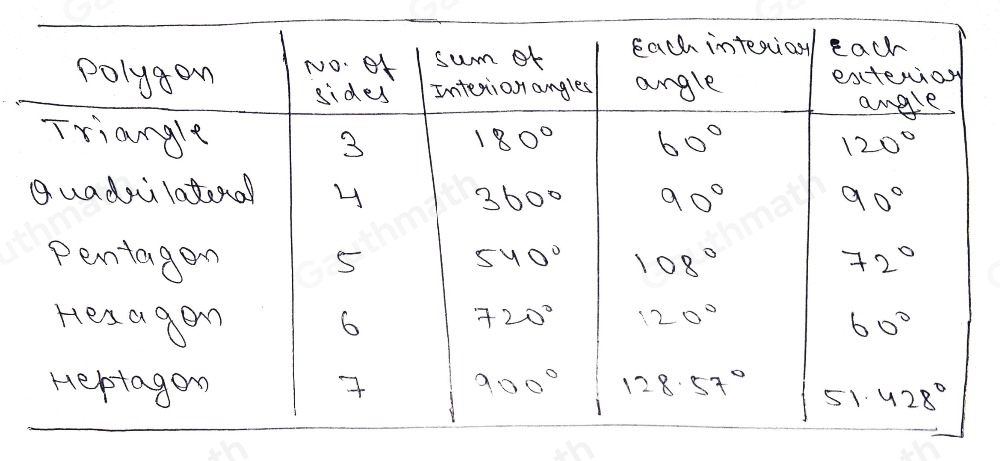 Polygon | No. of sides | Sum of Interior angles | Each interior angle | Each exterior angle
Triangle | 3 | 180° | 60° | 120°
Quadrilateral | 4 | 360° | 90° | 90°
Pentagon | 5 | 540° | 108° | 72°
Hexagon | 6 | 720° | 120° | 60°
Heptagon | 7 | 900° | 128.57° | 51.428°